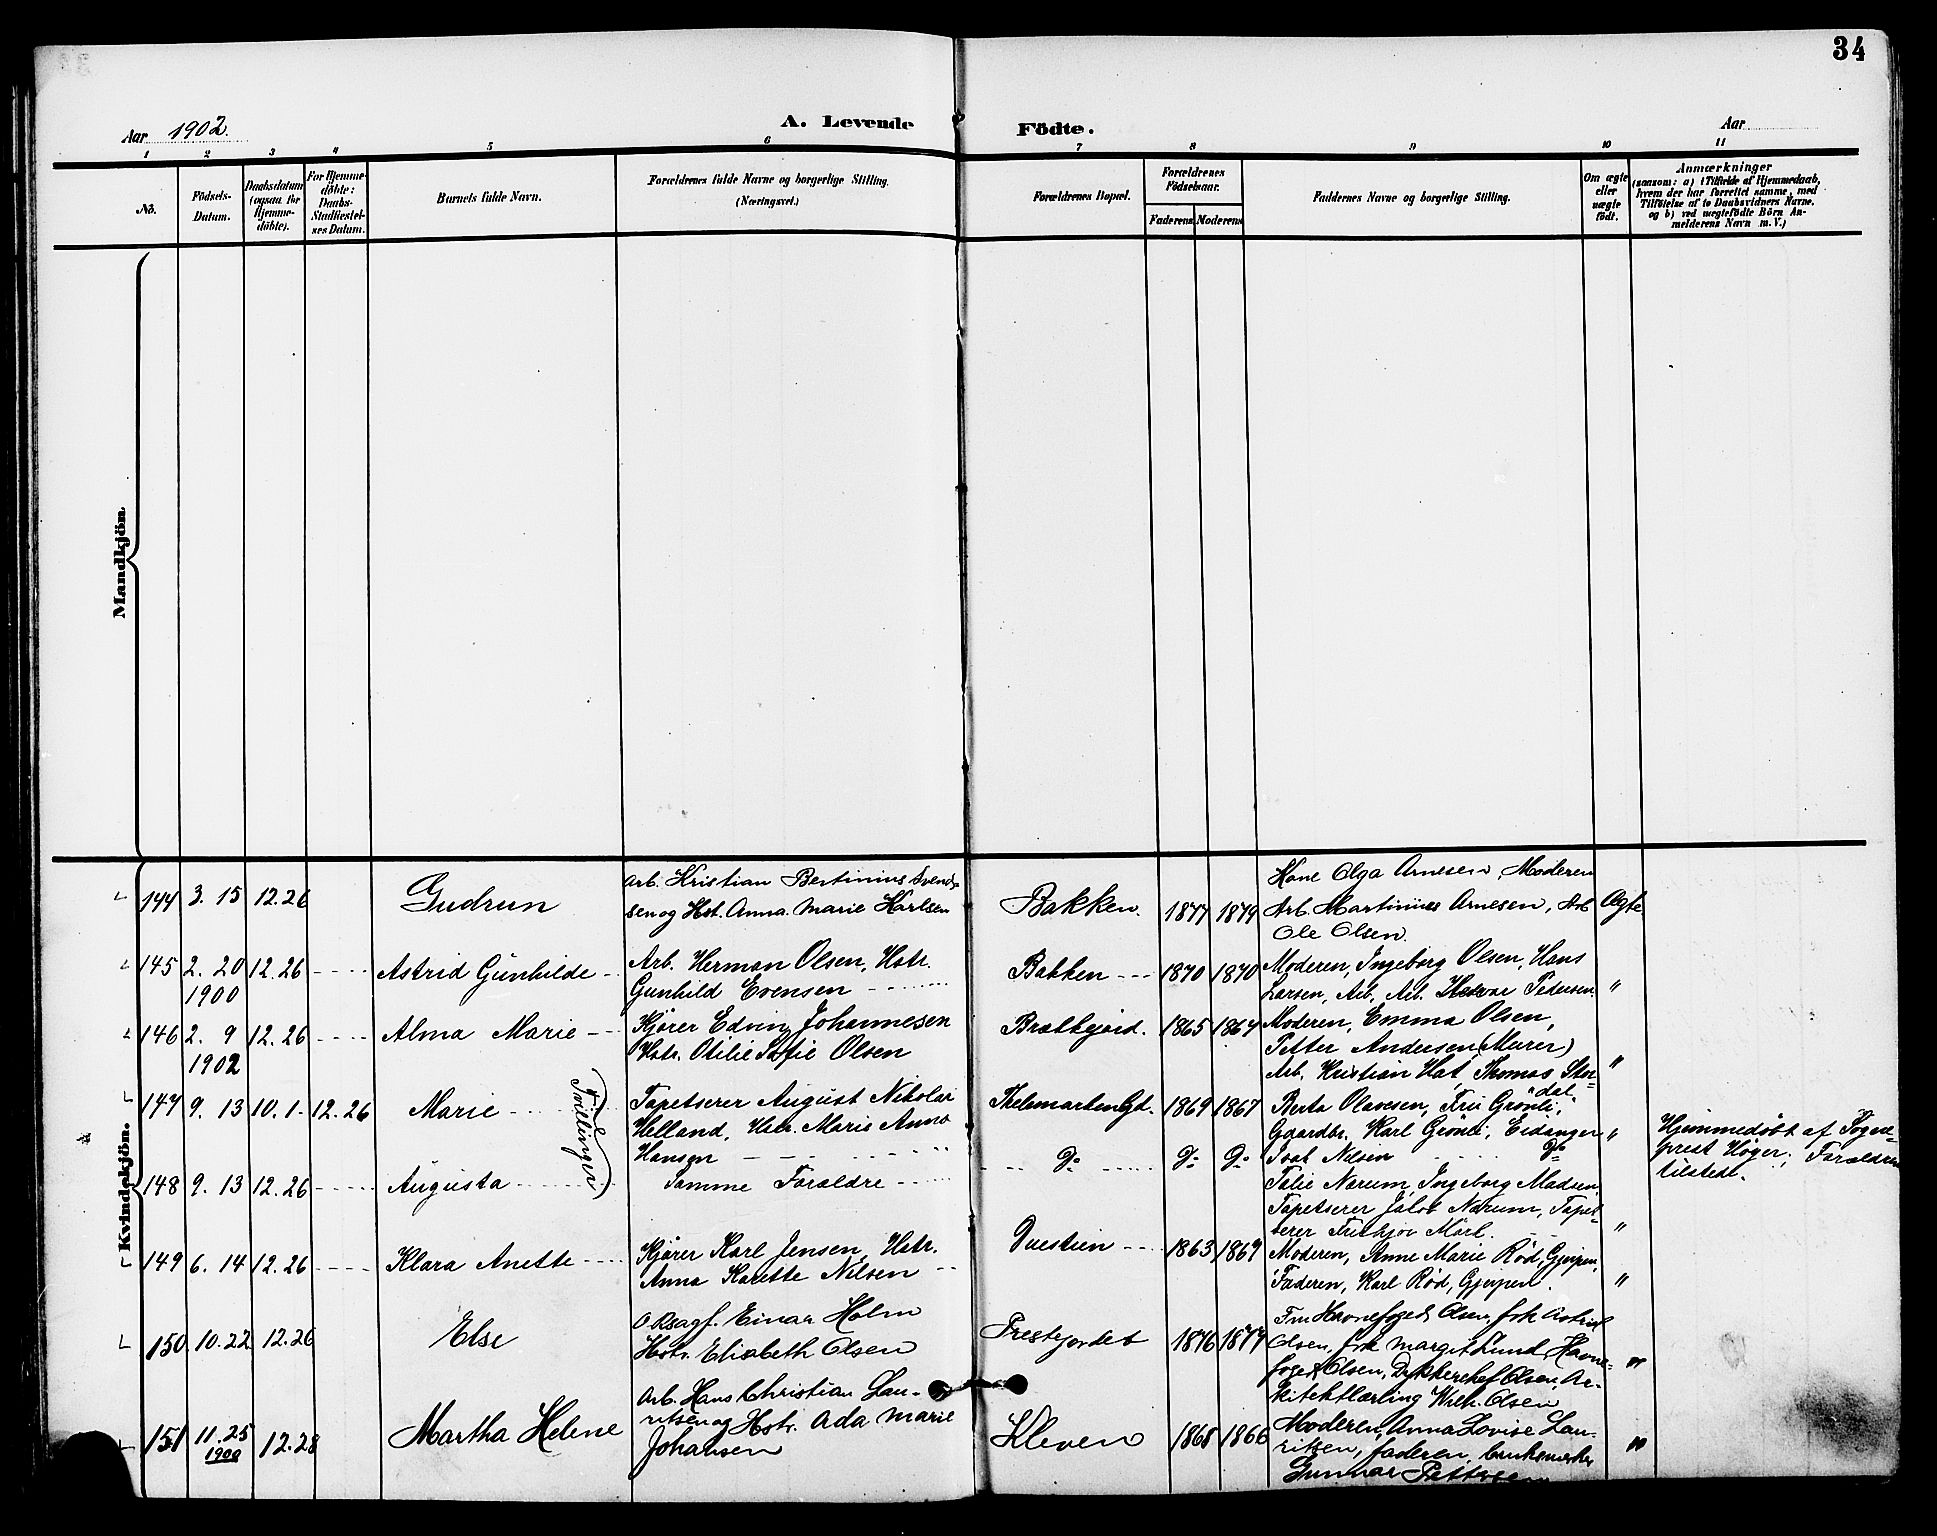 34
Aar 1902.
A. Levende Födte.
Aar
1 2 3 4 5 6 7 8 9 10 11
No.
Födsels-
Datum.
Daabsdatum
(ogsaa for
Hjemme-
döbte).
For Hjemme-
döbte:
Daabs-
Stadfæstel-
ses Datum.
Barnets fulde Navn.
Forældrenes fulde Navne og borgerlige Stilling.
(Næringsvei.)
Forældrenes Bopæl.
Forældrenes
Födselsaar.
Faderens Moderens
Faddernes Navne og borgerlige Stilling.
Om ægte
eller
uægte
födt.
Anmærkninger
(saasom: a) i Tilfælde af Hjemmedaab,
hvem der har forrettet samme, med
Tilföielse af to Daabsvidners Navne,
og b) ved uægtefödte Börn An-
melderens Navn m. V.)
Mandkjön.
Kvindekjön.
144 3. 15 12. 26
Gudrun
Arb. Kristian Bertinius Svend-
sen og Hst. Anna Marie Karlsen
Bakken. 1877 1879
Kone Olga Arnesen, Moderen
Arb. Martinius Arnesen, Arb
Ole Olsen.
Ægte
145 2. 20 12. 26
1900
Astrid Gunhilde
Arb. Herman Olsen, Hstr.
Gunhild Evensen
Bakken 1870 1870
Moderen, Ingeborg Olsen, Hans
Larsen, Arb, Arb. Pedersen
"
146 2. 9 12. 26
1902
Alma Marie
Kjører Edvin Johannesen
Hstr. Otilie Sofie Olsen
Bratkjord. 1865 1867
Moderen, Emma Olsen,
Petter Andersen (Murer)
Arb. Kristian Thomas Stor-
dal
"
147 9. 13 10. 1 12. 26
Marie
Tvillinger
Tapetserer August Nikolai
Helland, Hstr. Marie Anna
Hansen
Thelemarken Gd. 1869 1867
Berta Olavesen, Fru Grønli,
Gaardbr. Karl Grønli, Eidanger
Nilsen Do
"
Hjemmedøbt af Sogne-
prest Høyer; Forældrene
tilstede.
148 9. 13 12. 26
Augusta
Samme Forældre
Do Do Do
Talie Narum, Ingeborg Madsen,
Tapetserer Jakob Narum, Tapet-
serer Fritjov Mørl.
"
149 6. 14 12. 26
Klara Anette
Kjører Karl Jensen, Hstr.
Anna Karette Nilsen
1863 1869
Moderen, Anne Marie Rød, Gjerpen,
Faderen, Karl Rød, Gjerpen.
"
150 10. 22 12. 26
Else
O.R.sagf. Einar Holm
Hstr. Elisabeth Olsen
Frestjordet 1876 1877
Fru Havnefoged Olsen, frk Astrid
Olsen, frk Margit Lund, Havne-
foged Olsen, Dykkerchef Olsen, Ar-
kitektlærling Wilh. Olsen
"
151 11. 25 12. 28
1900
Martha Helene
Arb. Hans Christian Lau-
ritsen og Hstr. Ada Marie
Johansen
Kleven 1868 1866
Moderen, Anna Lovise Lau-
ritsen, faderen,
Gunnar Pettersen
"